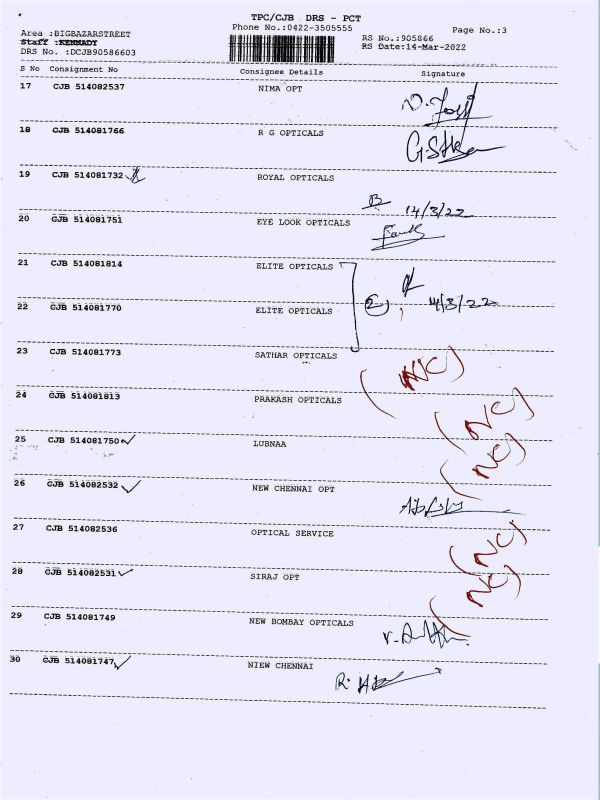 TPC/CJB DRS - PCT
Phone No.:0422-3505555
Page No.:3
Area :BIGBAZARSTREET
Staff :KENNADY
RS No.:905866
DRS No. :DCJB90586603
RS Date:14-Mar-2022
S No Consignment No Consignee Details Signature
17 CJB 514082537 NIMA OPT
18 CJB 514081766 R G OPTICALS
19 CJB 514081732 ROYAL OPTICALS
14/3/22
20 CJB 514081751 EYE LOOK OPTICALS
21 CJB 514081814 ELITE OPTICALS
22 CJB 514081770 ELITE OPTICALS (2) 14/3/22
23 CJB 514081773 SATHAR OPTICALS (NC)
24 CJB 514081813 PRAKASH OPTICALS (NC)
25 CJB 514081750 LUBNAA (NC)
26 CJB 514082532 NEW CHENNAI OPT
27 CJB 514082536 OPTICAL SERVICE (NC)
28 CJB 514082531 SIRAJ OPT (NC)
29 CJB 514081749 NEW BOMBAY OPTICALS
30 CJB 514081747 NIEW CHENNAI